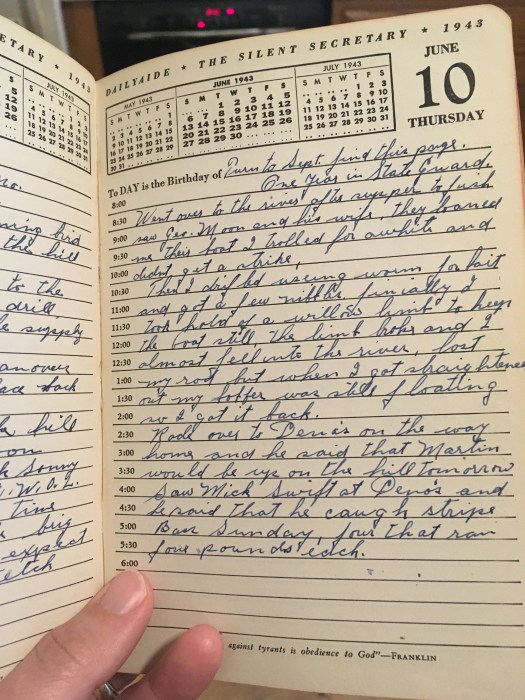 ETARY ★ 1943
S
5
12
19
26
no.
ning bird
the hill
to the
drill,
e supply
anover
ace back
k hill
on
k Sonny
W.O.L.
Time
brig
expect
etch
DAILYAIDE ★ THE SILENT SECRETARY ★ 1943
MAY 1943
S M T W T F S
1
2 3 4 5 6 7 8
9 10 11 12 13 14 15
16 17 18 19 20 21 22
23 24 25 26 27 28 29
30 31
JUNE 1943
S M T W T F S
1 2 3 4 5
6 7 8 9 10 11 12
13 14 15 16 17 18 19
20 21 22 23 24 25 26
27 28 29 30
JULY 1943
S M T W T F S
1 2 3
4 5 6 7 8 9 10
11 12 13 14 15 16 17
18 19 20 21 22 23 24
25 26 27 28 29 30 31
JUNE
10
THURSDAY
To DAY is the Birthday of Turn to Sept. find this page.
8:00 One Year in State Guard.
8:30 Went over to the river after supper to fish
9:00 saw Geo. Moon and his wife, they loaned
9:30 me their boat I trolled for awhile and
10:00 didnt get a strike,
10:30 Then I drifted useing worm for bait
11:00 and got a few nibbles, finially I
11:30 took hold of a willow limb to keep
12:00 the boat still, the limb broke and I
12:30 almost fell into the river, lost
1:00 my rod but when I got straightened
1:30 out my bobber was still floating
2:00 so I got it back.
2:30 Rode over to Deno's on the way
3:00 home and he said that Martin
3:30 would be up on the hill tomorrow
4:00 Saw Mick Swift at Deno's and
4:30 he said that he caugh stripe
5:00 Bass Sunday, four that ran
5:30 four pounds each.
6:00
against tyrants is obedience to God"—FRANKLIN